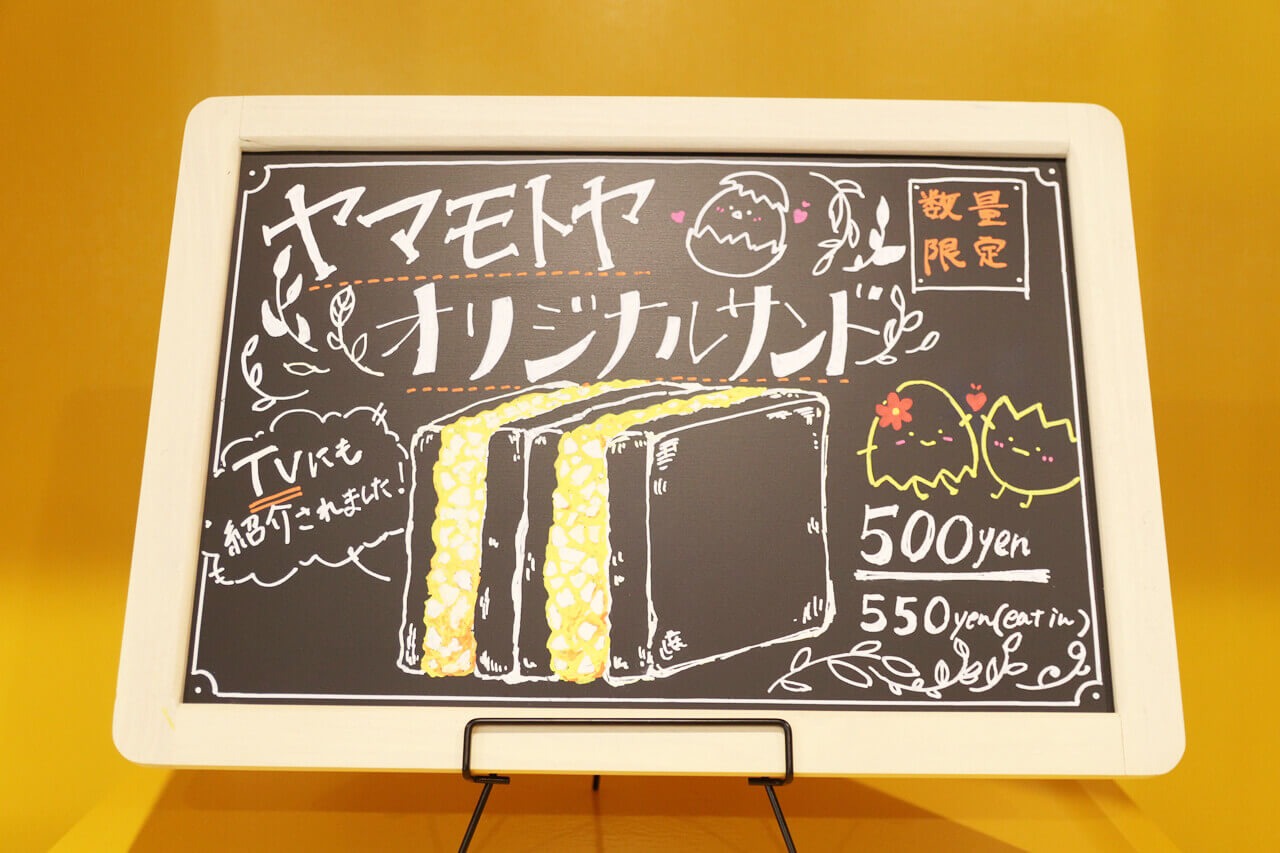 ヤマモトヤ
数量
限定
オリジナルサンド
TVにも
紹介されました!
500yen
550yen(eat in)